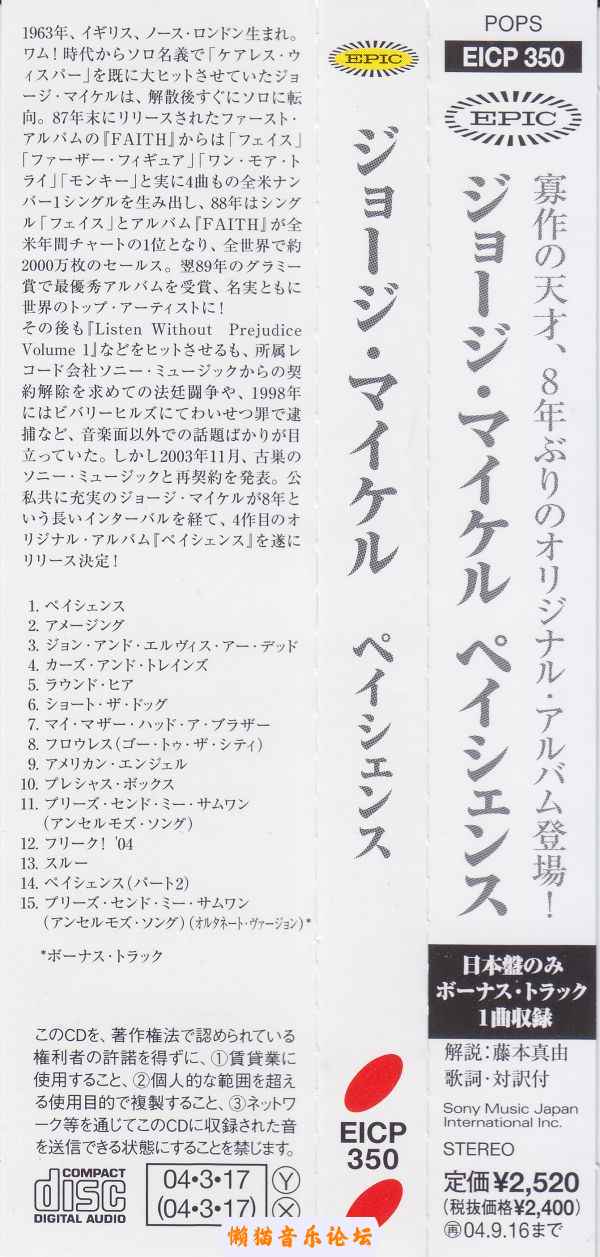 1963年、イギリス、ノース・ロンドン生まれ。
ワム！時代からソロ名義で「ケアレス・ウ
ィスパー」を既に大ヒットさせていたジョ
ージ・マイケルは、解散後すぐにソロに転
向。87年末にリリースされたファースト・
アルバムの『FAITH』からは「フェイス」
「ファーザー・フィギュア」「ワン・モア・ト
ライ」「モンキー」と実に4曲もの全米ナン
バー1シングルを生み出し、88年はシング
ル「フェイス」とアルバム『FAITH』が全
米年間チャートの1位となり、全世界で約
2000万枚のセールス。翌89年のグラミー
賞で最優秀アルバムを受賞、名実ともに
世界のトップ・アーティストに！
その後も『Listen Without Prejudice
Volume 1』などをヒットさせるも、所属レ
コード会社ソニー・ミュージックからの契
約解除を求めての法廷闘争や、1998年
にはビバリーヒルズにてわいせつ罪で逮
捕など、音楽面以外での話題ばかりが目
立っていた。しかし2003年11月、古巣の
ソニー・ミュージックと再契約を発表。公
私共に充実のジョージ・マイケルが8年
という長いインターバルを経て、4作目のオ
リジナル・アルバム『ペイシェンス』を遂に
リリース決定！
1. ペイシェンス
2. アメージング
3. ジョン・アンド・エルヴィス・アー・デッド
4. カーズ・アンド・トレインズ
5. ラウンド・ヒア
6. ショート・ザ・ドッグ
7. マイ・マザー・ハッド・ア・ブラザー
8. フロウレス（ゴー・トゥ・ザ・シティ）
9. アメリカン・エンジェル
10. プレシャス・ボックス
11. プリーズ・センド・ミー・サムワン
（アンセルモズ・ソング）
12. フリーク！ '04
13. スルー
14. ペイシェンス（パート2）
15. プリーズ・センド・ミー・サムワン
（アンセルモズ・ソング）（オルタネート・ヴァージョン）*
*ボーナス・トラック
このCDを、著作権法で認められている
権利者の許諾を得ずに、①賃貸業に
使用すること、②個人的な範囲を超え
る使用目的で複製すること、③ネットワ
ーク等を通じてこのCDに収録された音
を送信できる状態にすることを禁じます。
COMPACT
disc
DIGITAL AUDIO
04・3・17
(04・3・17)
Y
X
EPIC
ジョージ・マイケル ペイシェンス
EICP
350
POPS
EICP 350
EPIC
寡作の天才、8年ぶりのオリジナル・アルバム登場！
ジョージ・マイケル ペイシェンス
日本盤のみ
ボーナス・トラック
1曲収録
解説：藤本真由
歌詞・対訳付
Sony Music Japan
International Inc.
STEREO
定価¥2,520
(税抜価格¥2,400)
再04.9.16まで
懒猫音乐论坛